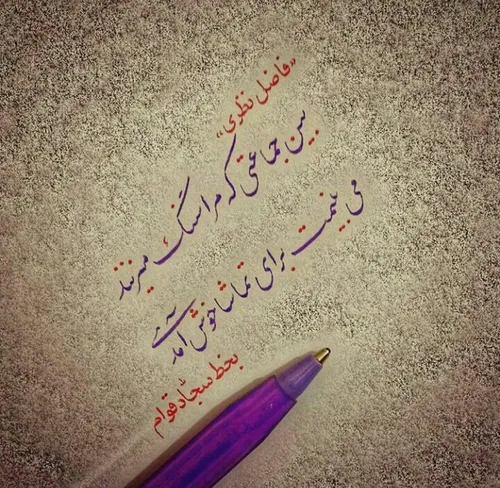 "فاضل نظری"
بین جماعتی که مرا سنگ میزنند
می بینمت برای تماشا خوش آمدی
بخط سجاد قوام